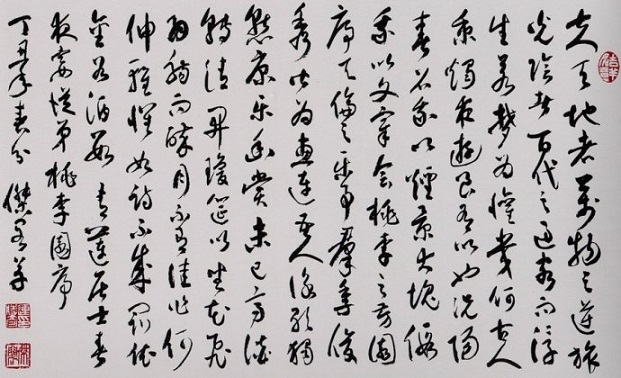 夫天地者萬物之逆旅
光陰者百代之過客而浮
生若夢為懽幾何古人
秉燭夜遊良有以也況陽
春召我以煙景大塊假
我以文章會桃李之芳園
序天倫之樂事羣季俊
秀皆為惠連吾人詠歌獨
慙康樂幽賞未已高談
轉清開瓊筵以坐花飛
羽觴而醉月不有佳作何
伸雅懷如詩不成罰依
金谷酒數 青蓮居士春
夜宴從弟桃李園序
丁丑年春分 傑